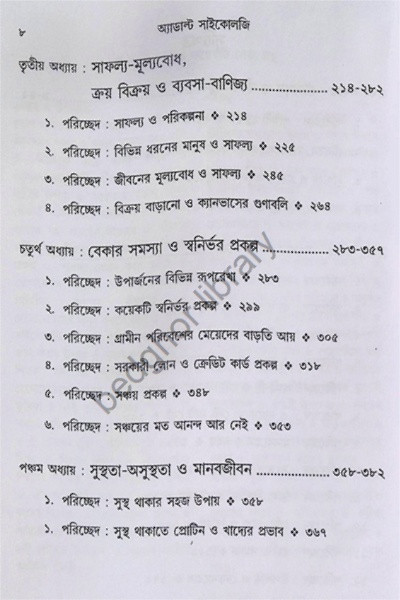 ৮ অ্যাডাল্ট সাইকোলজি
তৃতীয় অধ্যায় : সাফল্য-মূল্যবোধ,
ক্রয় বিক্রয় ও ব্যবসা-বাণিজ্য ..................... ২১৪-২৮২
১. পরিচ্ছেদ : সাফল্য ও পরিকল্পনা ❖ ২১৪
২. পরিচ্ছেদ : বিভিন্ন ধরনের মানুষ ও সাফল্য ❖ ২২৫
৩. পরিচ্ছেদ : জীবনের মূল্যবোধ ও সাফল্য ❖ ২৪৫
৪. পরিচ্ছেদ : বিক্রয় বাড়ানো ও ক্যানভাসের গুণাবলি ❖ ২৬৪
চতুর্থ অধ্যায় : বেকার সমস্যা ও স্বনির্ভর প্রকল্প ..................... ২৮৩-৩৫৭
১. পরিচ্ছেদ : উপার্জনের বিভিন্ন রূপরেখা ❖ ২৮৩
২. পরিচ্ছেদ : কয়েকটি স্বনির্ভর প্রকল্প ❖ ২৯৯
৩. পরিচ্ছেদ : গ্রামীন পরিবেশের মেয়েদের বাড়তি আয় ❖ ৩০৫
৪. পরিচ্ছেদ : সরকারী লোন ও ক্রেডিট কার্ড প্রকল্প ❖ ৩১৮
৫. পরিচ্ছেদ : সঞ্চয় প্রকল্প ❖ ৩৪৮
৬. পরিচ্ছেদ : সঞ্চয়ের মত আনন্দ আর নেই ❖ ৩৫৩
পঞ্চম অধ্যায় : সুস্থতা-অসুস্থতা ও মানবজীবন ..................... ৩৫৮-৩৮২
১. পরিচ্ছেদ : সুস্থ থাকার সহজ উপায় ❖ ৩৫৮
১. পরিচ্ছেদ : সুস্থ থাকাতে প্রোটিন ও খাদ্যের প্রভাব ❖ ৩৬৭